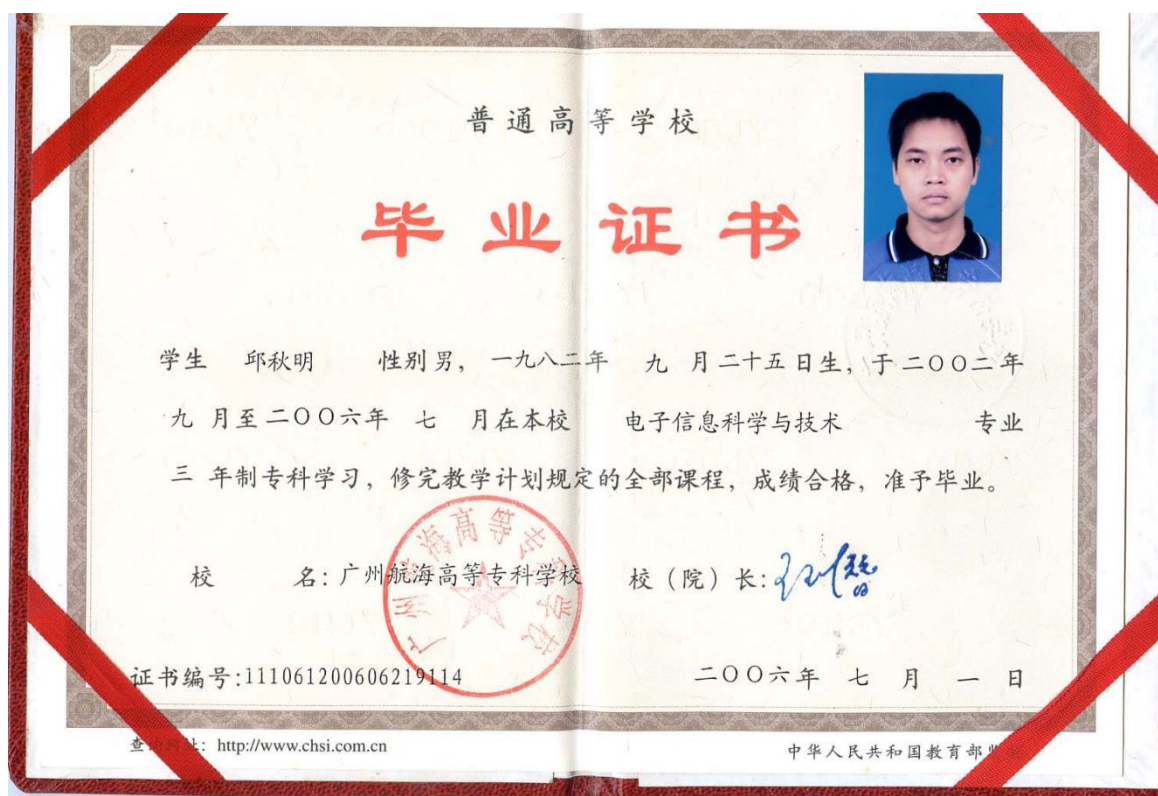 普通高等学校
毕业证书
学生 邱秋明 性别男，一九八二年 九 月二十五日生，于二〇〇二年
九 月至二〇〇六年 七 月在本校 电子信息科学与技术 专业
三 年制专科学习，修完教学计划规定的全部课程，成绩合格，准予毕业。
校 名：广州航海高等专科学校 校（院）长：
广州航海高等专科学校
证书编号：111061200606219114 二〇〇六年 七 月 一 日
http://www.chsi.com.cn 中华人民共和国教育部